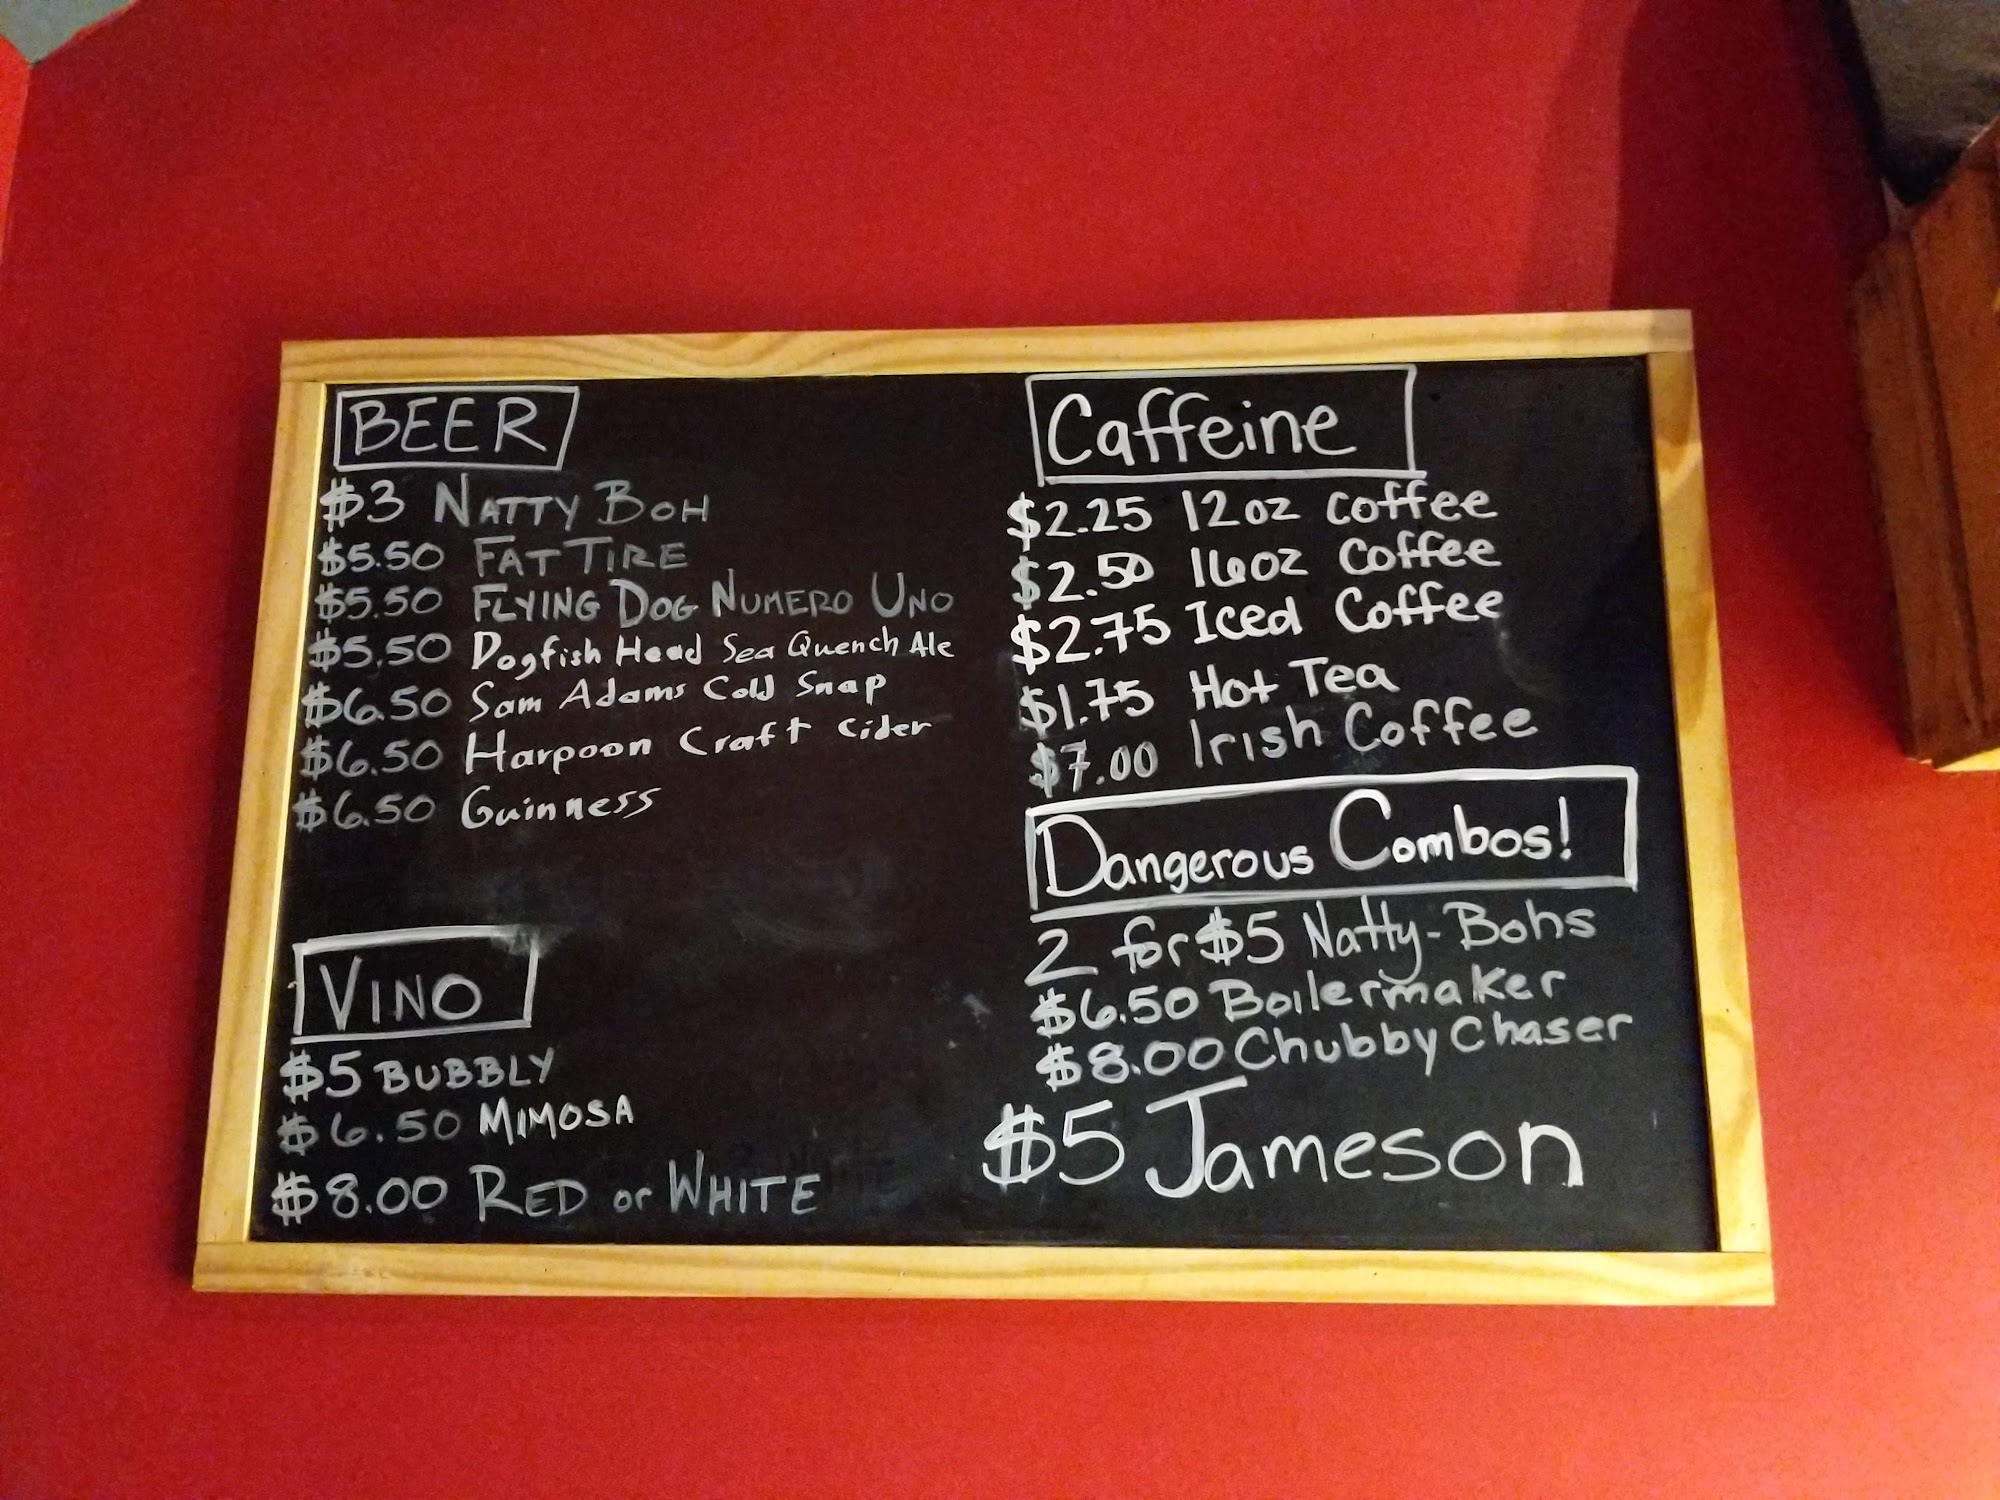 BEER
$3 NATTY BOH
$5.50 FAT TIRE
$5.50 FLYING DOG NUMERO UNO
$5.50 Dogfish Head Sea Quench Ale
$6.50 Sam Adams Cold Snap
$6.50 Harpoon Craft Cider
$6.50 Guinness
VINO
$5 BUBBLY
$6.50 MIMOSA
$8.00 RED or WHITE
Caffeine
$2.25 12oz coffee
$2.50 16oz coffee
$2.75 Iced Coffee
$1.75 Hot Tea
$7.00 Irish Coffee
Dangerous Combos!
2 for $5 Natty-Bohs
$6.50 Boilermaker
$8.00 Chubby Chaser
$5 Jameson